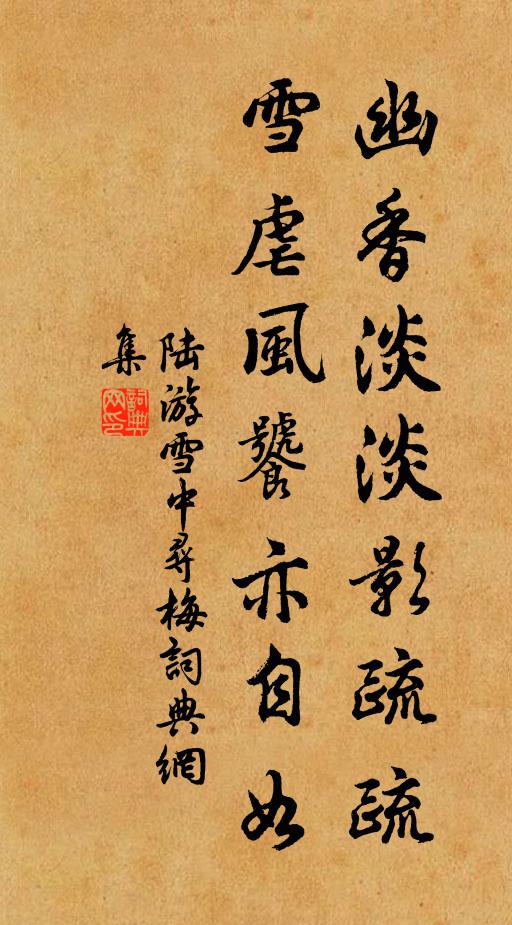 幽香淡淡影疏疏
雪虐風饕亦自如
陆游雪中尋梅詞典網
集
詞典網印